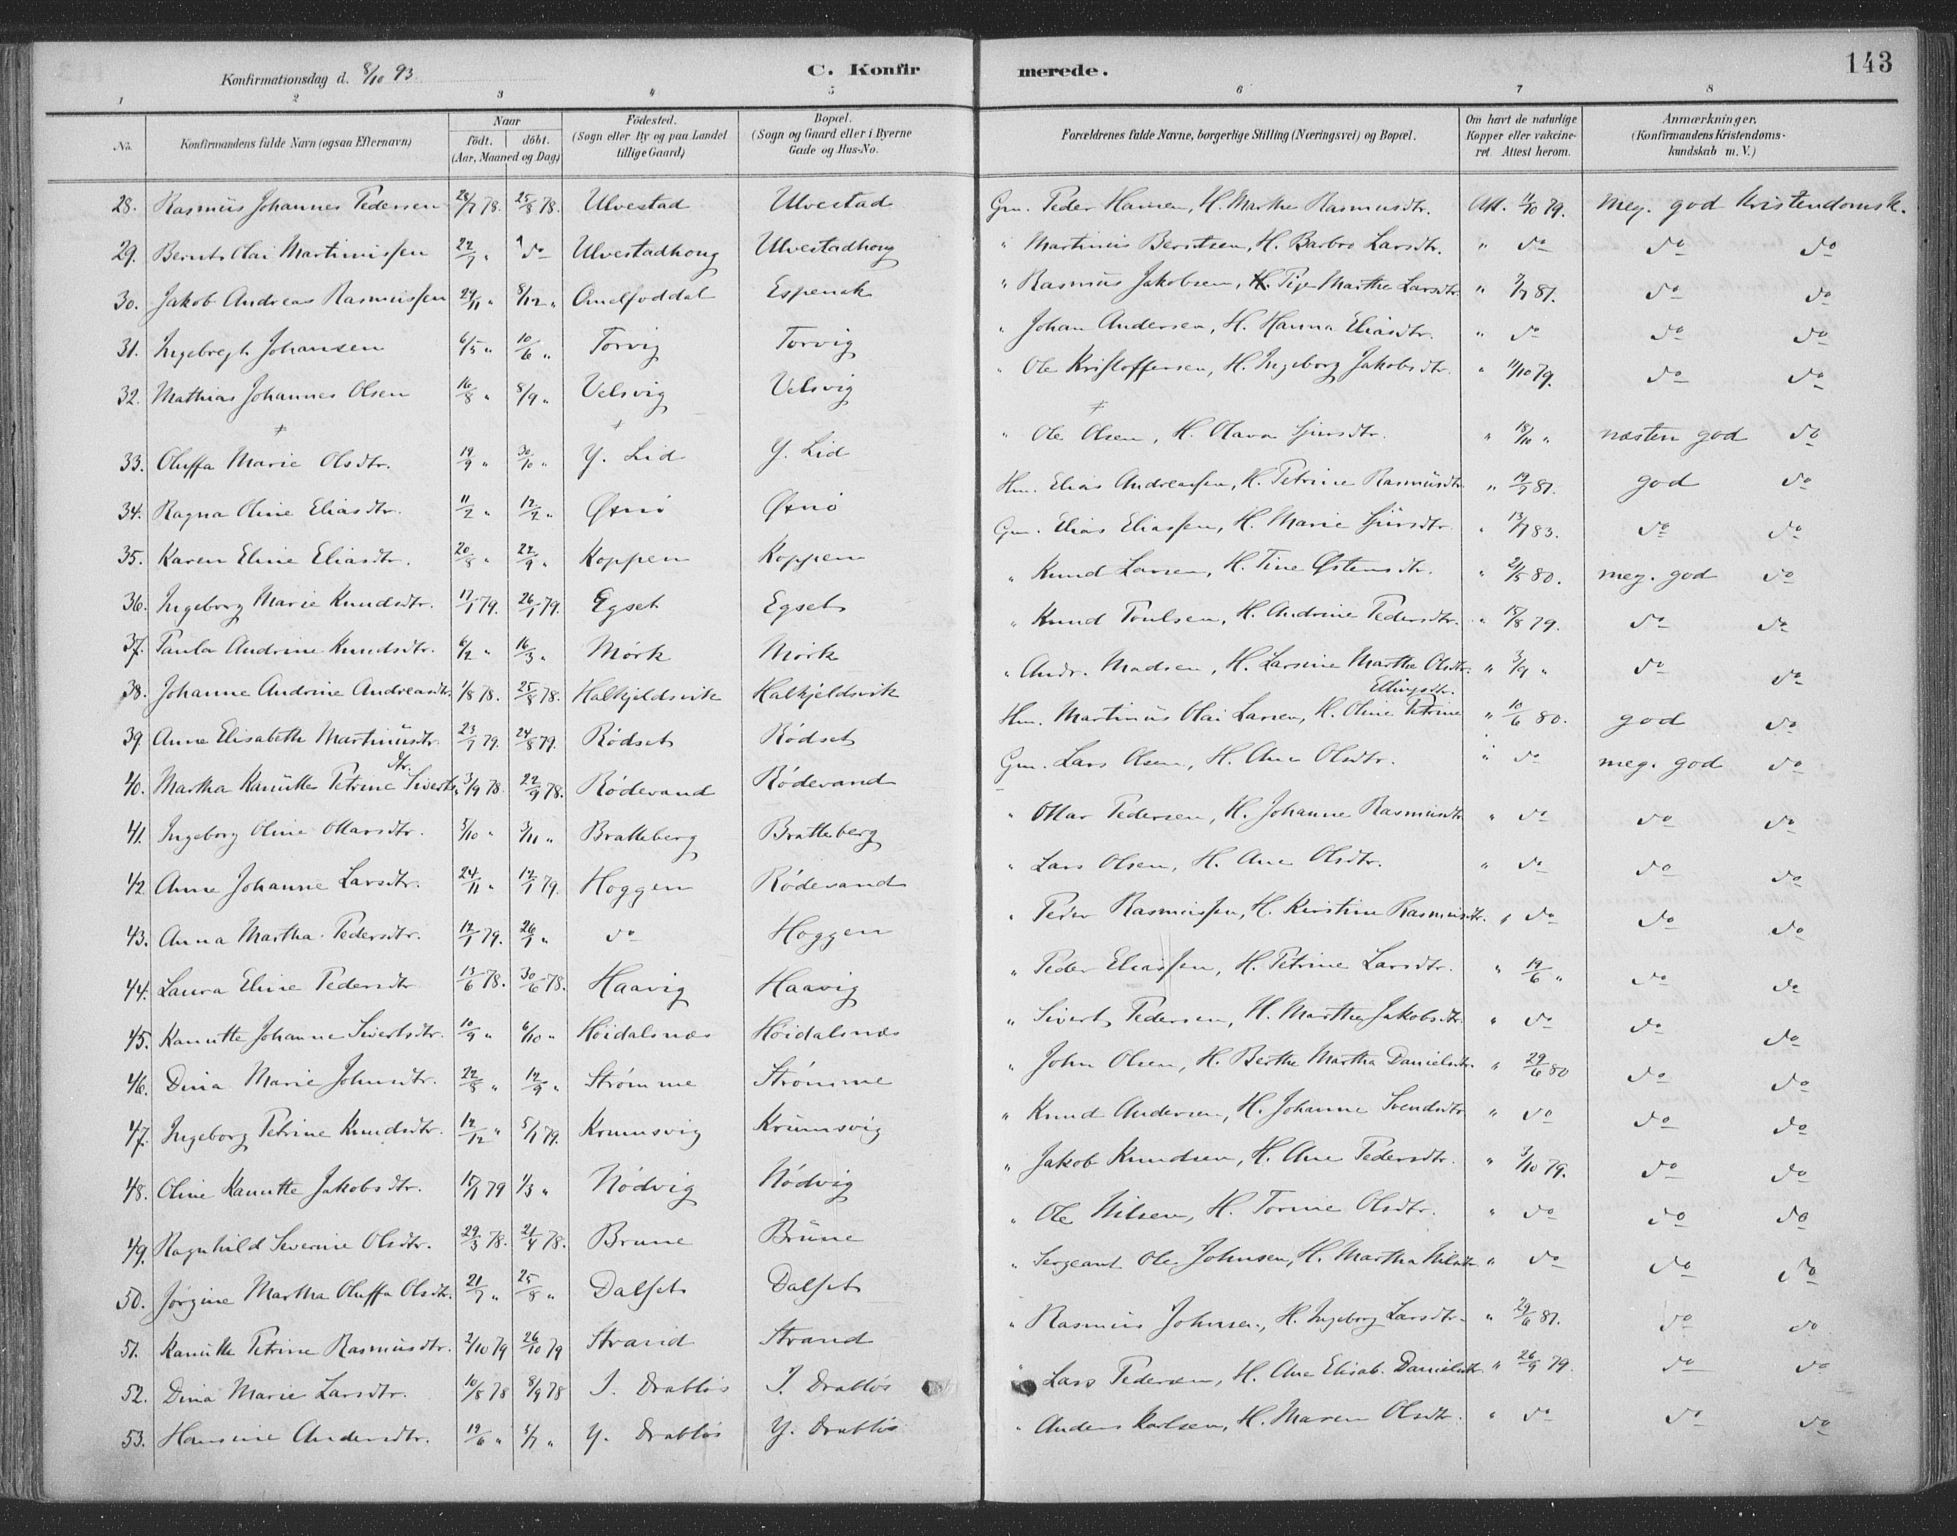 Konfirmationsdag d. 8/10 93. C. Konfirmerede. 143
1 2 3 4 5 6 7 8
No. Konfirmandens fulde Navn (ogsaa Efternavn) Naar födt. döbt. (Aar, Maaned og Dag) Födested. (Sogn eller By og paa Landet tillige Gaard) Bopæl. (Sogn og Gaard eller i Byerne Gade og Hus-No. Forældrenes fulde Navne, borgerlige Stilling (Næringsvei) og Bopæl. Om havt de naturlige Kopper eller vakcineret. Attest herom. Anmærkninger. (Konfirmandens Kristendomskundskab m. V.)
28. Rasmus Johannes Pedersen 28/7 78. 25/8 78. Ulvestad Ulvestad Gm. Peder Hansen, H. Marthe Rasmusdtr. Att. 11/10 79. meg. god Kristendomsk.
29. Bernt Olai Martinussen 22/7 " do Ulvestadhoug Ulvestadhoug " Martinus Berntsen, H. Barbro Larsdtr. " do do do
30. Jakob Andreas Rasmussen 29/11 " 8/12 " Amelfoddal Espenak " Rasmus Jakobsen, Pige Marthe Larsdtr. " 7/7 81. do do
31. Ingebregt Johansen 6/5 " 10/6 " Torvig Torvig " Johan Andersen, H. Hanna Eliasdtr. " do do do
32. Mathias Johannes Olsen 16/8 " 8/9 " Velsvig Velsvig " Ole Kristoffersen, H. Ingeborg Jakobsdtr. " 11/10 79. do do
33. Oluffa Marie Olsdtr. 19/9 " 30/10 " Y. Lid Y. Lid " Ole Olsen, H. Olava Sjursdtr. " 18/10 " næsten god do
34. Ragna Oline Eliasdtr. 11/2 " 12/2 " Øxnø Øxnø Hm. Elias Andreassen, H. Petrine Rasmusdtr. " 19/7 81. god do
35. Karen Eline Eliasdtr. 20/8 " 22/9 " Koppen Koppen Gm. Elias Eliassen, H. Marie Sjursdtr. " 13/7 83. do do
36. Ingeborg Marie Knudsdtr. 17/1 79. 26/1 79. Egset Egset " Knud Larsen, H. Tine Østensdtr. " 21/5 80. meg. god do
37. Paula Andrine Knudsdtr. 6/2 " 16/3 " Mørk Mørk " Knud Poulsen, H. Andrine Pedersdtr. " 18/8 79. do do
38. Johanne Andrine Andreasdtr. 1/8 78. 25/8 78. Halkjeldsvik Halkjeldsvik " Andr. Madsen, H. Larsine Marthe Olsdtr. " 3/9 " do do
39. Anne Elisabeth Martinusdtr. 23/7 79. 24/8 79. Rödset Rödset Hm. Martinus Olai Larsen, H. Oline Petrine Ellingsdtr. " 10/6 80. god do
40. Martha Kanutte Petrine Sivertsdtr. 3/9 78. 22/9 78. Rödevand Rödevand Gm. Lars Olsen, H. Ane Olsdtr. " do meg. god do
41. Ingeborg Oline Ottarsdtr. 3/10 " 3/11 " Bratteberg Bratteberg " Ottar Pedersen, H. Johanne Rasmusdtr " do do do
42 Anne Johanne Larsdtr. 24/11 " 12/1 79. Hoggen Rödevand " Lars Olsen, H. Ane Olsdtr. " do do do
43. Anna Martha Pedersdtr. 12/1 79. 26/1 " do Hoggen " Peder Rasmussen, H. Kirstine Rasmusdtr. " do do do
44. Laura Eline Pedersdtr 13/6 78. 30/6 78. Haavig Haavig " Peder Eliassen, H. Petrine Larsdtr. " 19/6 " do do
45. Kanutte Johanne Sivertsdtr. 10/9 " 6/10 " Höidalsnæs Höidalsnæs " Sivert Pedersen, H. Marthe Jakobsdtr. " do do do
46. Dina Marie Johnsdtr. 22/8 " 12/9 " Strömme Strömme " John Olsen, H. Berthe Martha Danielsdtr. " 29/6 80 do do
47. Ingeborg Petrine Knudsdtr. 12/12 " 5/1 79. Krumsvig Krumsvig " Knud Andersen, H. Johanne Svendsdtr " do do do
48. Oline Kanutte Jakobsdtr. 15/1 79 1/3 " Nödvig Nödvig " Jakob Knudsen, H. Ane Pedersdtr. " 3/10 79. do do
49. Ragnhild Severine Olsdtr. 29/3 78. 21/4 78. Brune Brune " Ole Nilsen, H. Torine Olsdtr. " do do do
50. Jørgine Martha Oluffa Olsdtr. 21/7 " 25/8 " Dalset Dalset " Sergeant Ole Johnsen, H. Martha Nilsdtr " do do do
51. Kanutte Petrine Rasmusdtr. 2/10 79 26/10 79 Strand Strand " Rasmus Johnsen, H. Ingeborg Larsdtr. " 29/6 81. do do
52. Dina Marie Larsdtr. 10/8 78 8/9 78 I. Drabløs I. Drabløs " Lars Pedersen, H. Ane Elisab. Danielsdtr " 26/9 79. do do
53. Hansine Andersdtr. 19/6 " 5/7 " Y. Drabløs Y. Drabløs " Anders Karlsen, H. Maren Olsdtr. " do do do